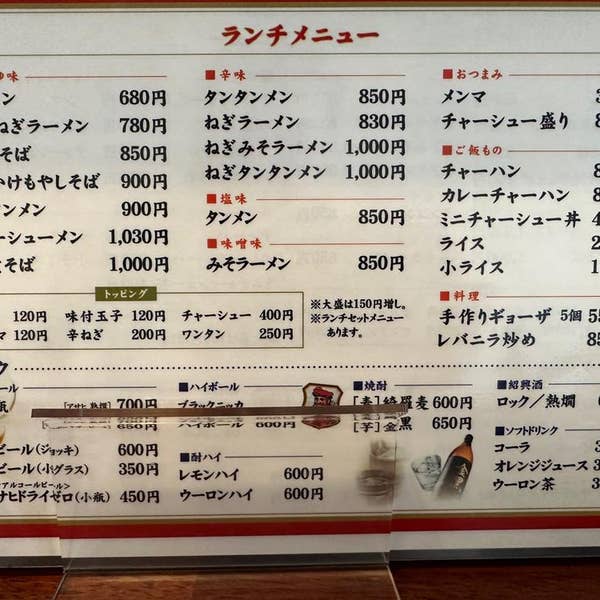 ランチメニュー
ゆ味
ン 680円
ねぎラーメン 780円
そば 850円
かけもやしそば 900円
ンメン 900円
ーシューメン 1,030円
そば 1,000円
■辛味
タンタンメン 850円
ねぎラーメン 830円
ねぎみそラーメン 1,000円
ねぎタンタンメン 1,000円
■塩味
タンメン 850円
■味噌味
みそラーメン 850円
■おつまみ
メンマ 3
チャーシュー盛り 8
■ご飯もの
チャーハン 8
カレーチャーハン 8
ミニチャーシュー丼 4
ライス 2
小ライス 1
■料理
手作りギョーザ 5個 55
レバニラ炒め 85
トッピング
120円 味付玉子 120円 チャーシュー 400円
マ 120円 辛ねぎ 200円 ワンタン 250円
※大盛は150円増し。
※ランチセットメニュー
あります。
ク
ール
瓶 [アサヒ 熟撰] 700円
ビール(ジョッキ) 600円
ビール(小グラス) 350円
アルコールビール>
ナヒドライゼロ(小瓶) 450円
■ハイボール
ブラックニッカ
ハイボール 600円
■酎ハイ
レモンハイ 600円
ウーロンハイ 600円
■焼酎
[麦]綺羅麦 600円
[芋]金黒 650円
■紹興酒
ロック/熱燗 6
■ソフトドリンク
コーラ 3
オレンジジュース 3
ウーロン茶 3